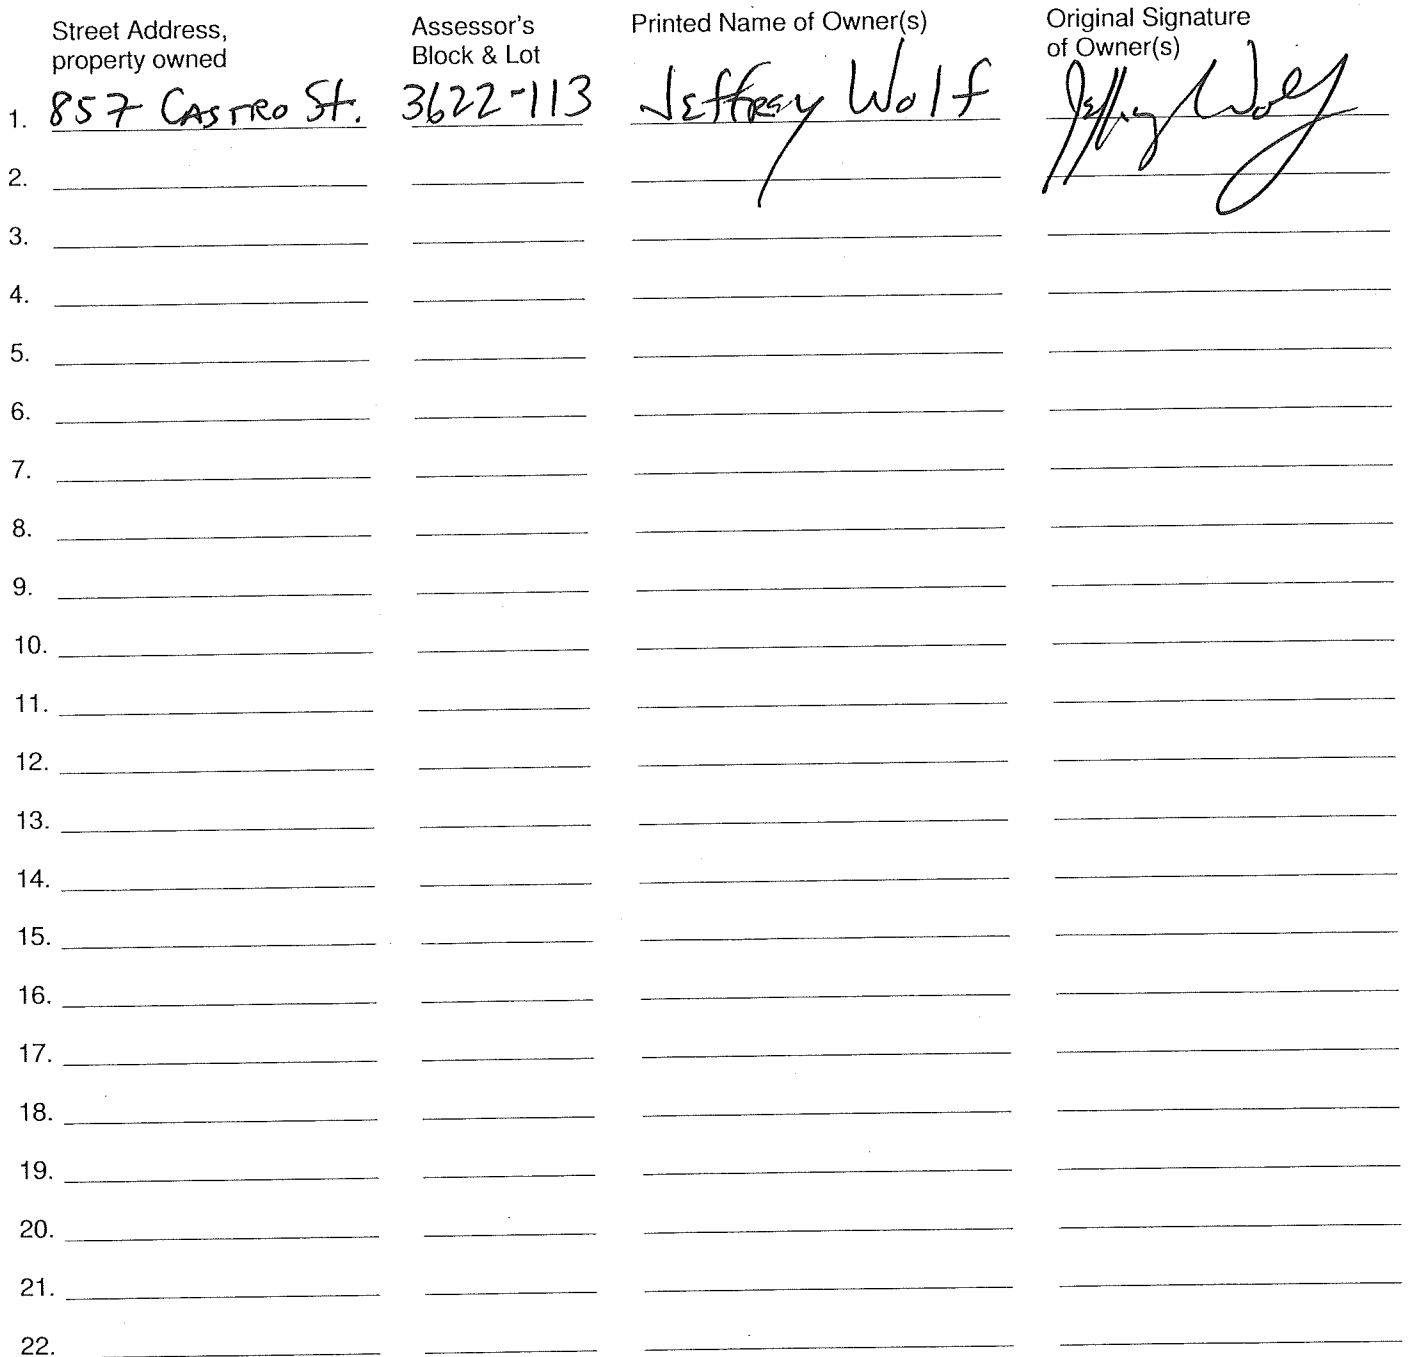 Street Address, property owned Assessor's Block & Lot Printed Name of Owner(s) Original Signature of Owner(s)
1. 857 Castro St. 3622-113 Jeffrey Wolf Jeffrey Wolf
2.
3.
4.
5.
6.
7.
8.
9.
10.
11.
12.
13.
14.
15.
16.
17.
18.
19.
20.
21.
22.